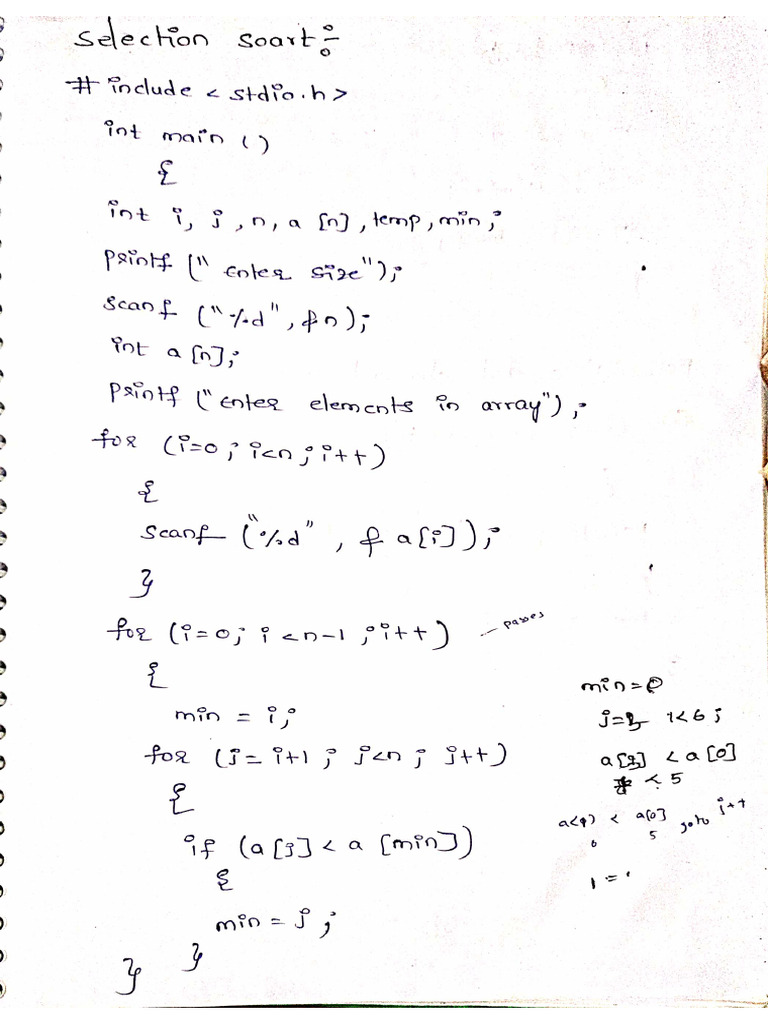 Selection soart:-
# include < stdio.h>
int main ()
{
int i, j, n, a [n], temp, min;
printf (" Enter size");
scanf ("%d", &n);
int a [n];
printf ("Enter elements in array");
for (i=0; i<n; i++)
{
scanf ("%d", & a[i]);
}
for (i=0; i <n-1; i++) — passes
{
min = i;
for (j= i+1; j<n; j++)
{
if (a[j] < a [min])
{
min = j;
}
}
min=0
j= 1<6;
a[j] < a[0]
< 5
a<1) < a[0] goto j++
6 5
1 =